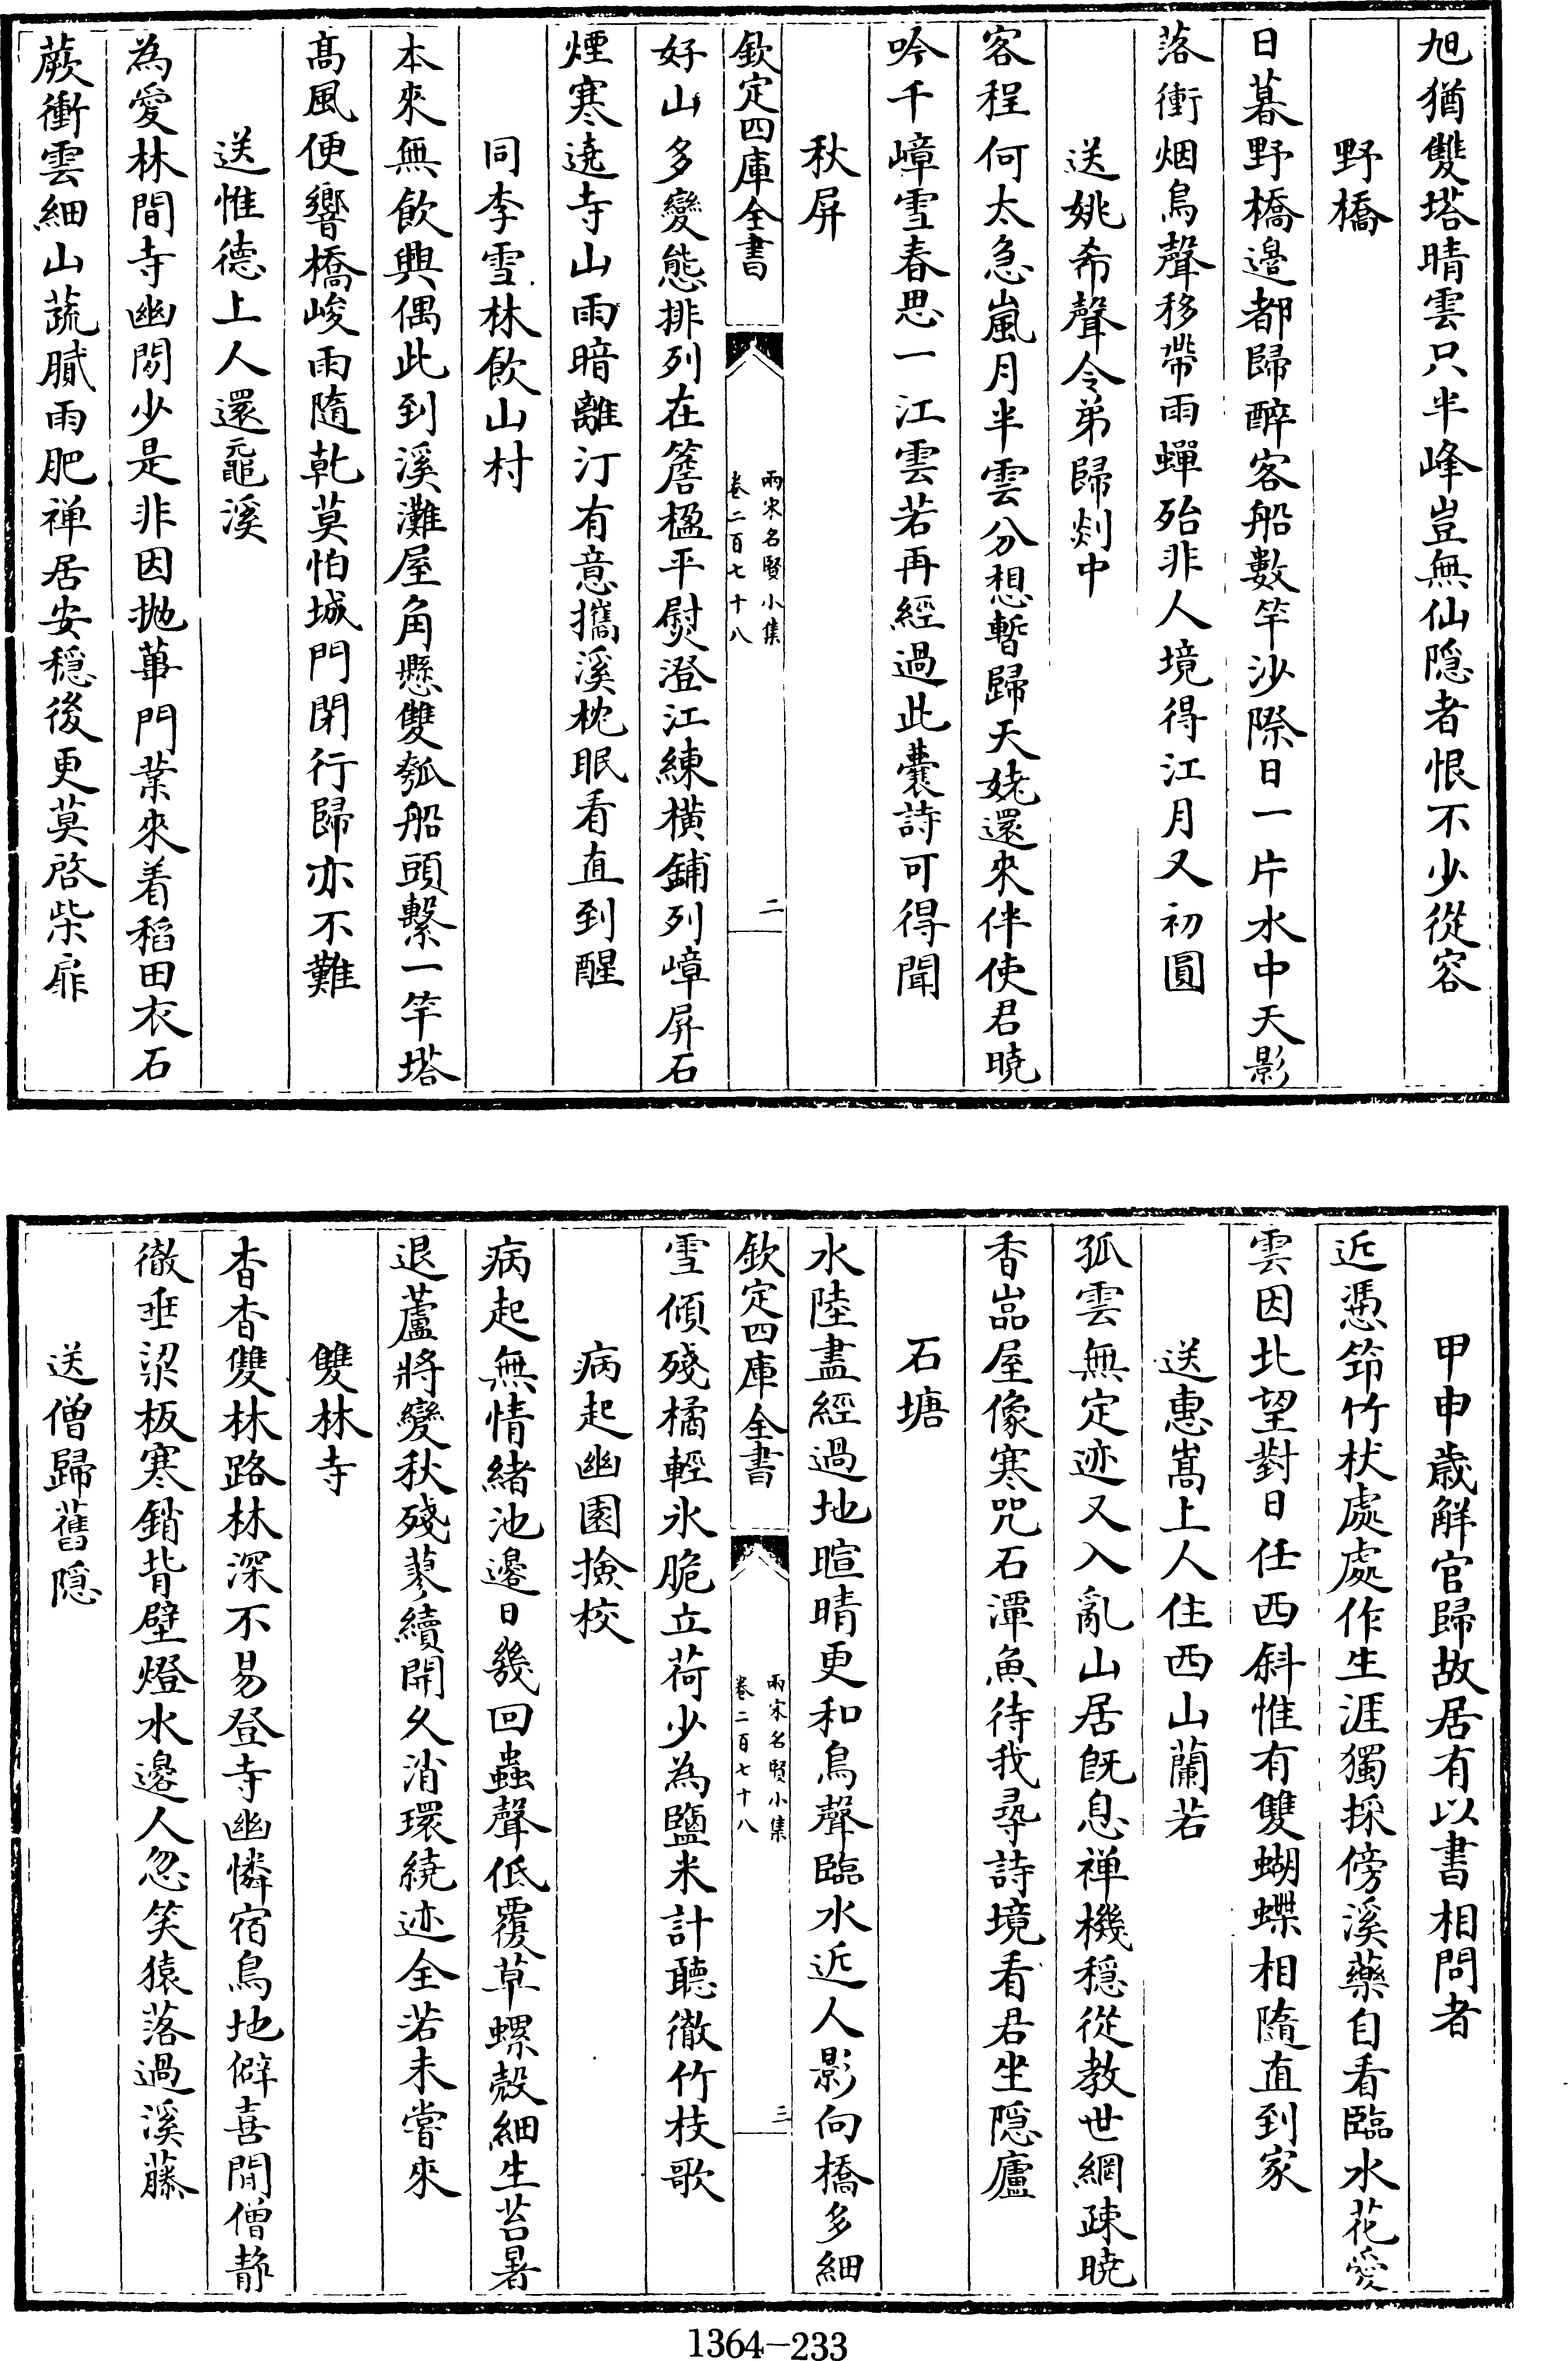 旭猶雙塔晴雲只半峰豈無仙隠者恨不少從容
野橋
日暮野橋邉都歸醉客船數竿沙際日一片水中天影
落衝烟鳥聲移帶雨蟬殆非人境得江月又初圓
送姚希聲令弟歸剡中
客程何太急嵐月半雲分想暫歸天姥還來伴使君曉
吟千嶂雪春思一江雲若再經過此囊詩可得聞
秋屏
欽定四庫全書
兩宋名賢小集
卷二百七十八
二
好山多變態排列在簷楹平熨澄江練横鋪列嶂屏石
煙寒遶寺山雨暗離汀有意攜溪枕眠看直到醒
同李雪林飲山村
本來無飲興偶此到溪灘屋角懸雙瓠船頭繫一竿塔
髙風便響橋峻雨隨乾莫怕城門閉行歸亦不難
送惟德上人還黿溪
為愛林間寺幽閒少是非因抛蓽門業來着稻田衣石
蕨衝雲細山蔬膩雨肥禅居安穏後更莫啓柴扉
甲申歳解官歸故居有以書相問者
近憑筇竹杖處處作生涯獨採傍溪藥自看臨水花愛
雲因北望對日任西斜惟有雙蝴蝶相隨直到家
送惠嵩上人住西山蘭若
孤雲無定迹又入亂山居既息禅機穏從教世網疎曉
香嵓屋像寒咒石潭魚待我尋詩境看君坐隠廬
石塘
水陸盡經過地暄晴更和鳥聲臨水近人影向橋多細
欽定四庫全書
兩宋名賢小集
卷二百七十八
三
雪傾殘橘輕氷脆立荷少為鹽米計聽徹竹枝歌
病起幽園撿校
病起無情緒池邊日幾回蟲聲低覆草螺殼細生苔暑
退蘆將變秋殘蓼續開久消環繞迹全若未嘗來
雙林寺
杳杳雙林路林深不易登寺幽憐宿鳥地僻喜閒僧静
徹垂梁板寒銷背壁燈水邊人忽笑猿落過溪藤
送僧歸舊隠
1364-233